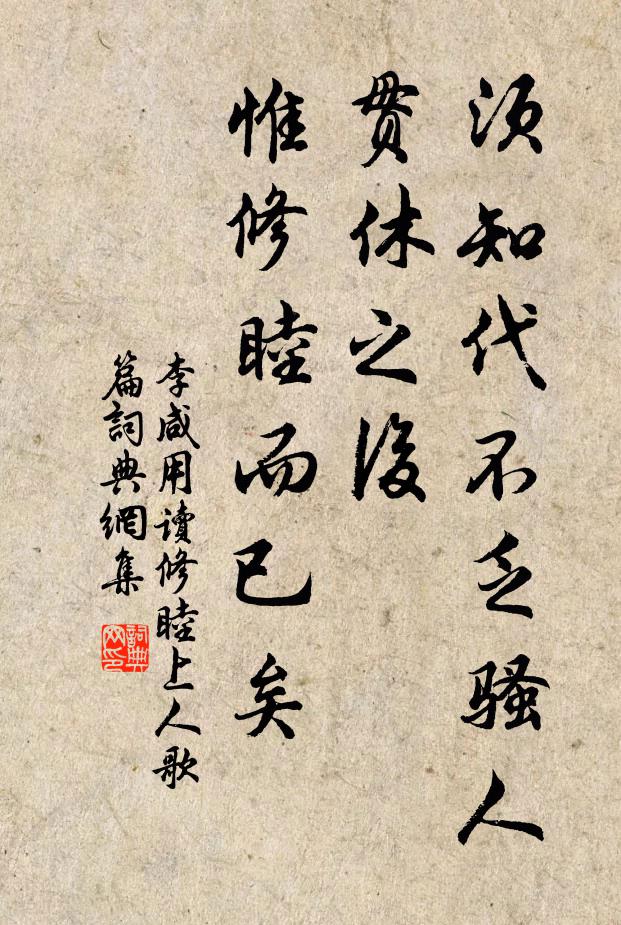 须知代不乏骚人
贯休之後
惟修睦而已矣
李咸用读修睦上人歌
篇词典網集
詞典网印